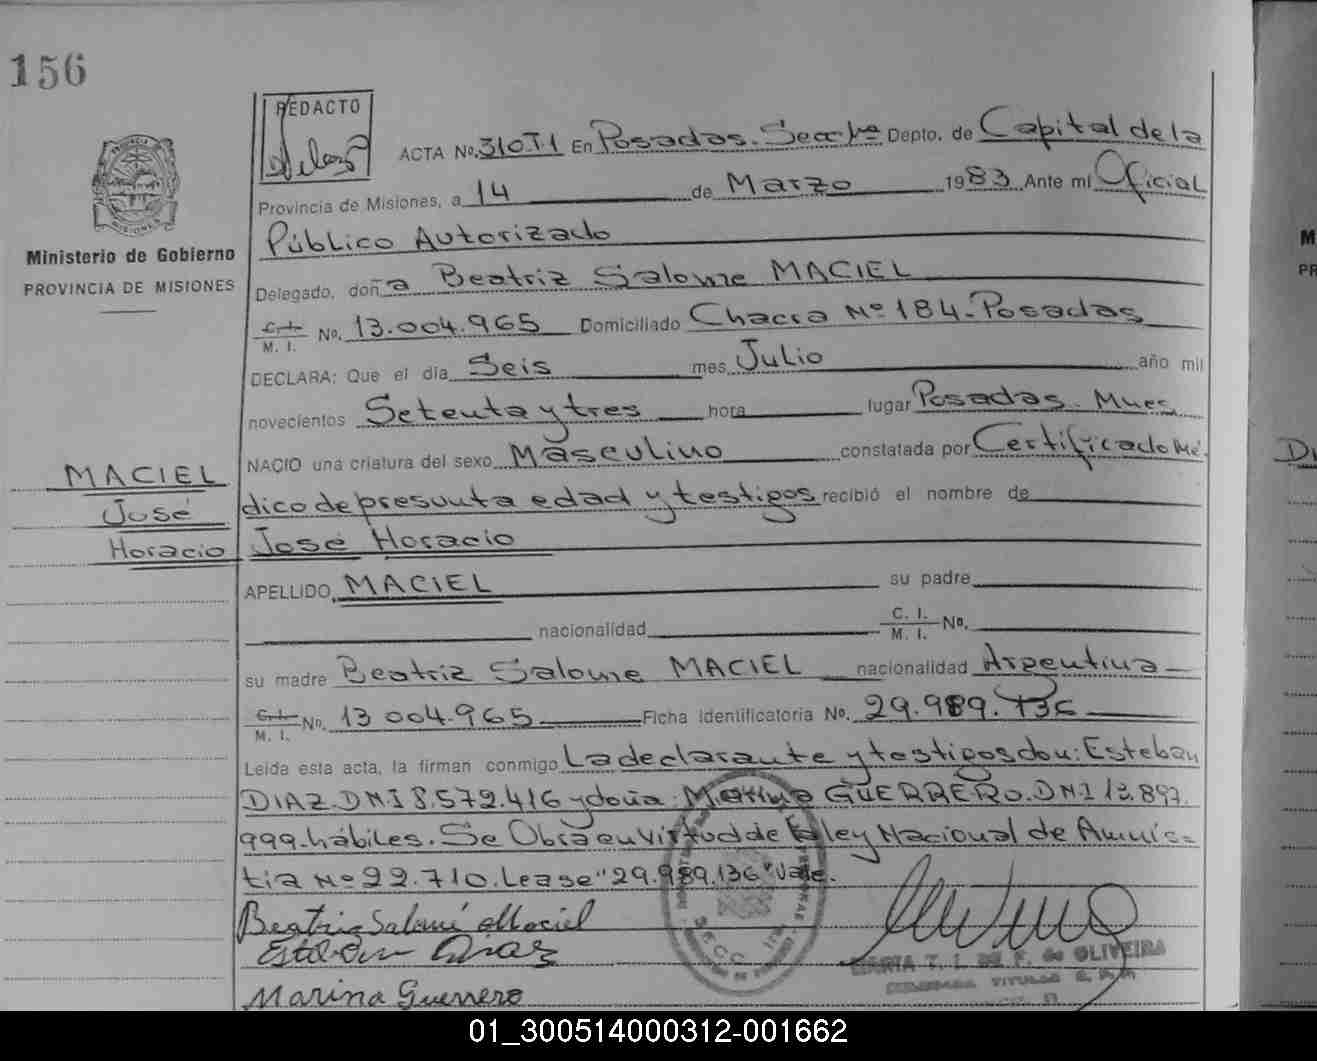 156
REDACTO
ACTA No. 310 T1 En Posadas. Secc 1ra Depto. de Capital de la
Provincia de Misiones, a 14 de Marzo 1983 Ante mi Oficial
Público Autorizado
Ministerio de Gobierno
PROVINCIA DE MISIONES
Delegado, doña Beatriz Salome MACIEL
C. I. M. I. No. 13.004.965 Domiciliado Chacra Nº 184-Posadas
DECLARA: Que el día Seis mes Julio año mil
novecientos Setenta y tres hora lugar Posadas. Mnes
NACIO una criatura del sexo Masculino constatada por Certificado Mé-
dico de presunta edad y testigos recibió el nombre de
MACIEL
José
Horacio
José Horacio
APELLIDO, MACIEL su padre
nacionalidad C. I. M. I. No.
su madre Beatriz Salome MACIEL nacionalidad Argentina
C. I. M. I. No. 13 004.965 Ficha Identificatoria No. 29.989.136
Leída esta acta, la firman conmigo La declarante y testigos don: Esteban
DIAZ.DNI 8.572.416 y doña: Marina GUERRERO.DNI 13.897.
999.hábiles. Se Obra en virtud de la ley Nacional de Amnis=
tia Nº 22.710. Lease "29.989.136" Vale.
Beatriz Salomé Maciel
Esteban Diaz
Marina Guerrero
MARIA T. I. DE F. de OLIVEIRA
01_300514000312-001662